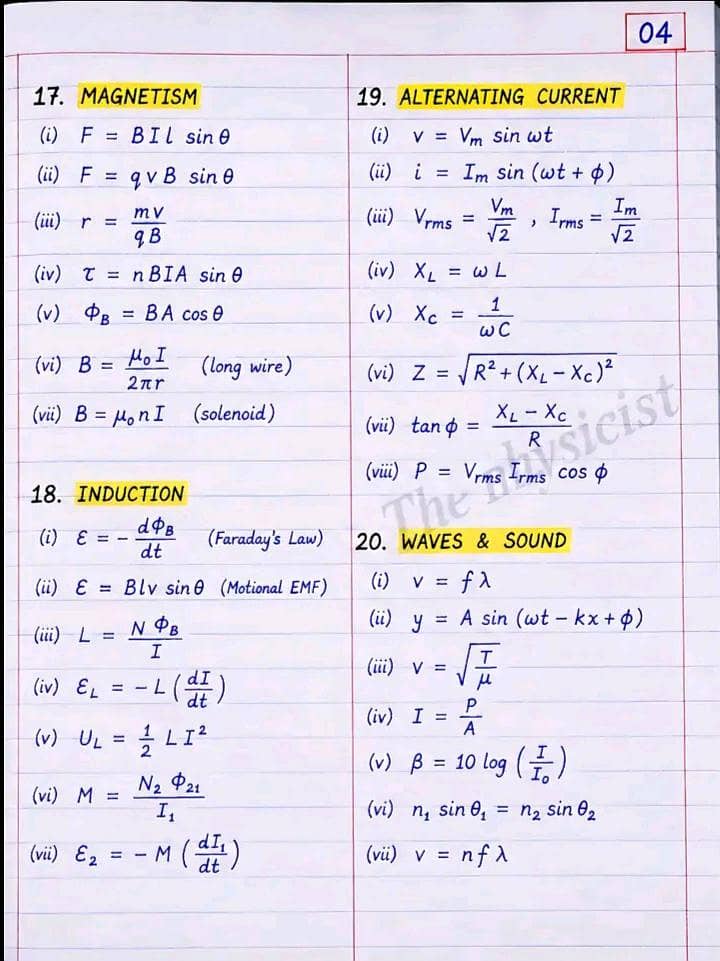 04
17. MAGNETISM
(i) F = BIl sin θ
(ii) F = qvB sin θ
(iii) r = mv / qB
(iv) τ = nBIA sin θ
(v) Φ_B = BA cos θ
(vi) B = μ₀I / 2πr (long wire)
(vii) B = μ₀nI (solenoid)
18. INDUCTION
(i) Ɛ = - dΦ_B / dt (Faraday's Law)
(ii) Ɛ = Blv sin θ (Motional EMF)
(iii) L = N Φ_B / I
(iv) Ɛ_L = - L (dI / dt)
(v) U_L = 1/2 LI²
(vi) M = N₂ Φ₂₁ / I₁
(vii) Ɛ₂ = - M (dI₁ / dt)
19. ALTERNATING CURRENT
(i) v = V_m sin ωt
(ii) i = I_m sin (ωt + φ)
(iii) V_rms = V_m / √2 , I_rms = I_m / √2
(iv) X_L = ωL
(v) X_C = 1 / ωC
(vi) Z = √(R² + (X_L - X_C)²)
(vii) tan φ = (X_L - X_C) / R
(viii) P = V_rms I_rms cos φ
20. WAVES & SOUND
(i) v = fλ
(ii) y = A sin (ωt - kx + φ)
(iii) v = √(T / μ)
(iv) I = P / A
(v) β = 10 log (I / I₀)
(vi) n₁ sin θ₁ = n₂ sin θ₂
(vii) v = nfλ
The physicist